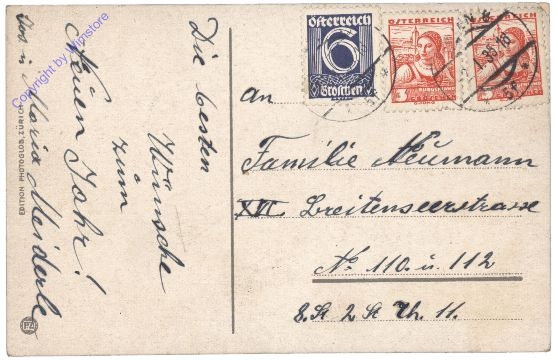 Die besten
Wünsche
zum
Neuen Jahr!
Maria Meiderle
EDITION PHOTOGLOB, ZÜRICH
PZ
Copyright by Winstore
Österreich
6
Groschen
ÖSTERREICH
3
ÖSTERREICH
An
Familie Neumann
XVI Breitenseerstrasse
No 110. u. 112
8. St 2 St Th. 11.